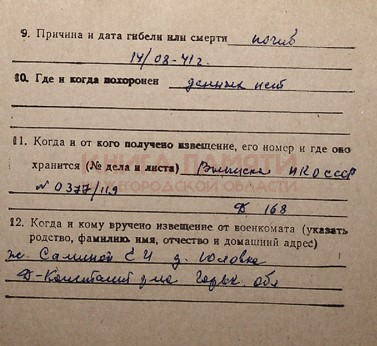 9. Причина и дата гибели или смерти погиб
14/08-41г.
10. Где и когда похоронен данных нет
11. Когда и от кого получено извещение, его номер и где оно
хранится (№ дела и листа) Выписка НКО СССР
КНИГА ПАМЯТИ
НИЖЕГОРОДСКОЙ ОБЛАСТИ
N 0377/119
Д 168
12. Когда и кому вручено извещение от военкомата (указать
родство, фамилию, имя, отчество и домашний адрес)
Е И д.
Д-Константин Горьк. обл